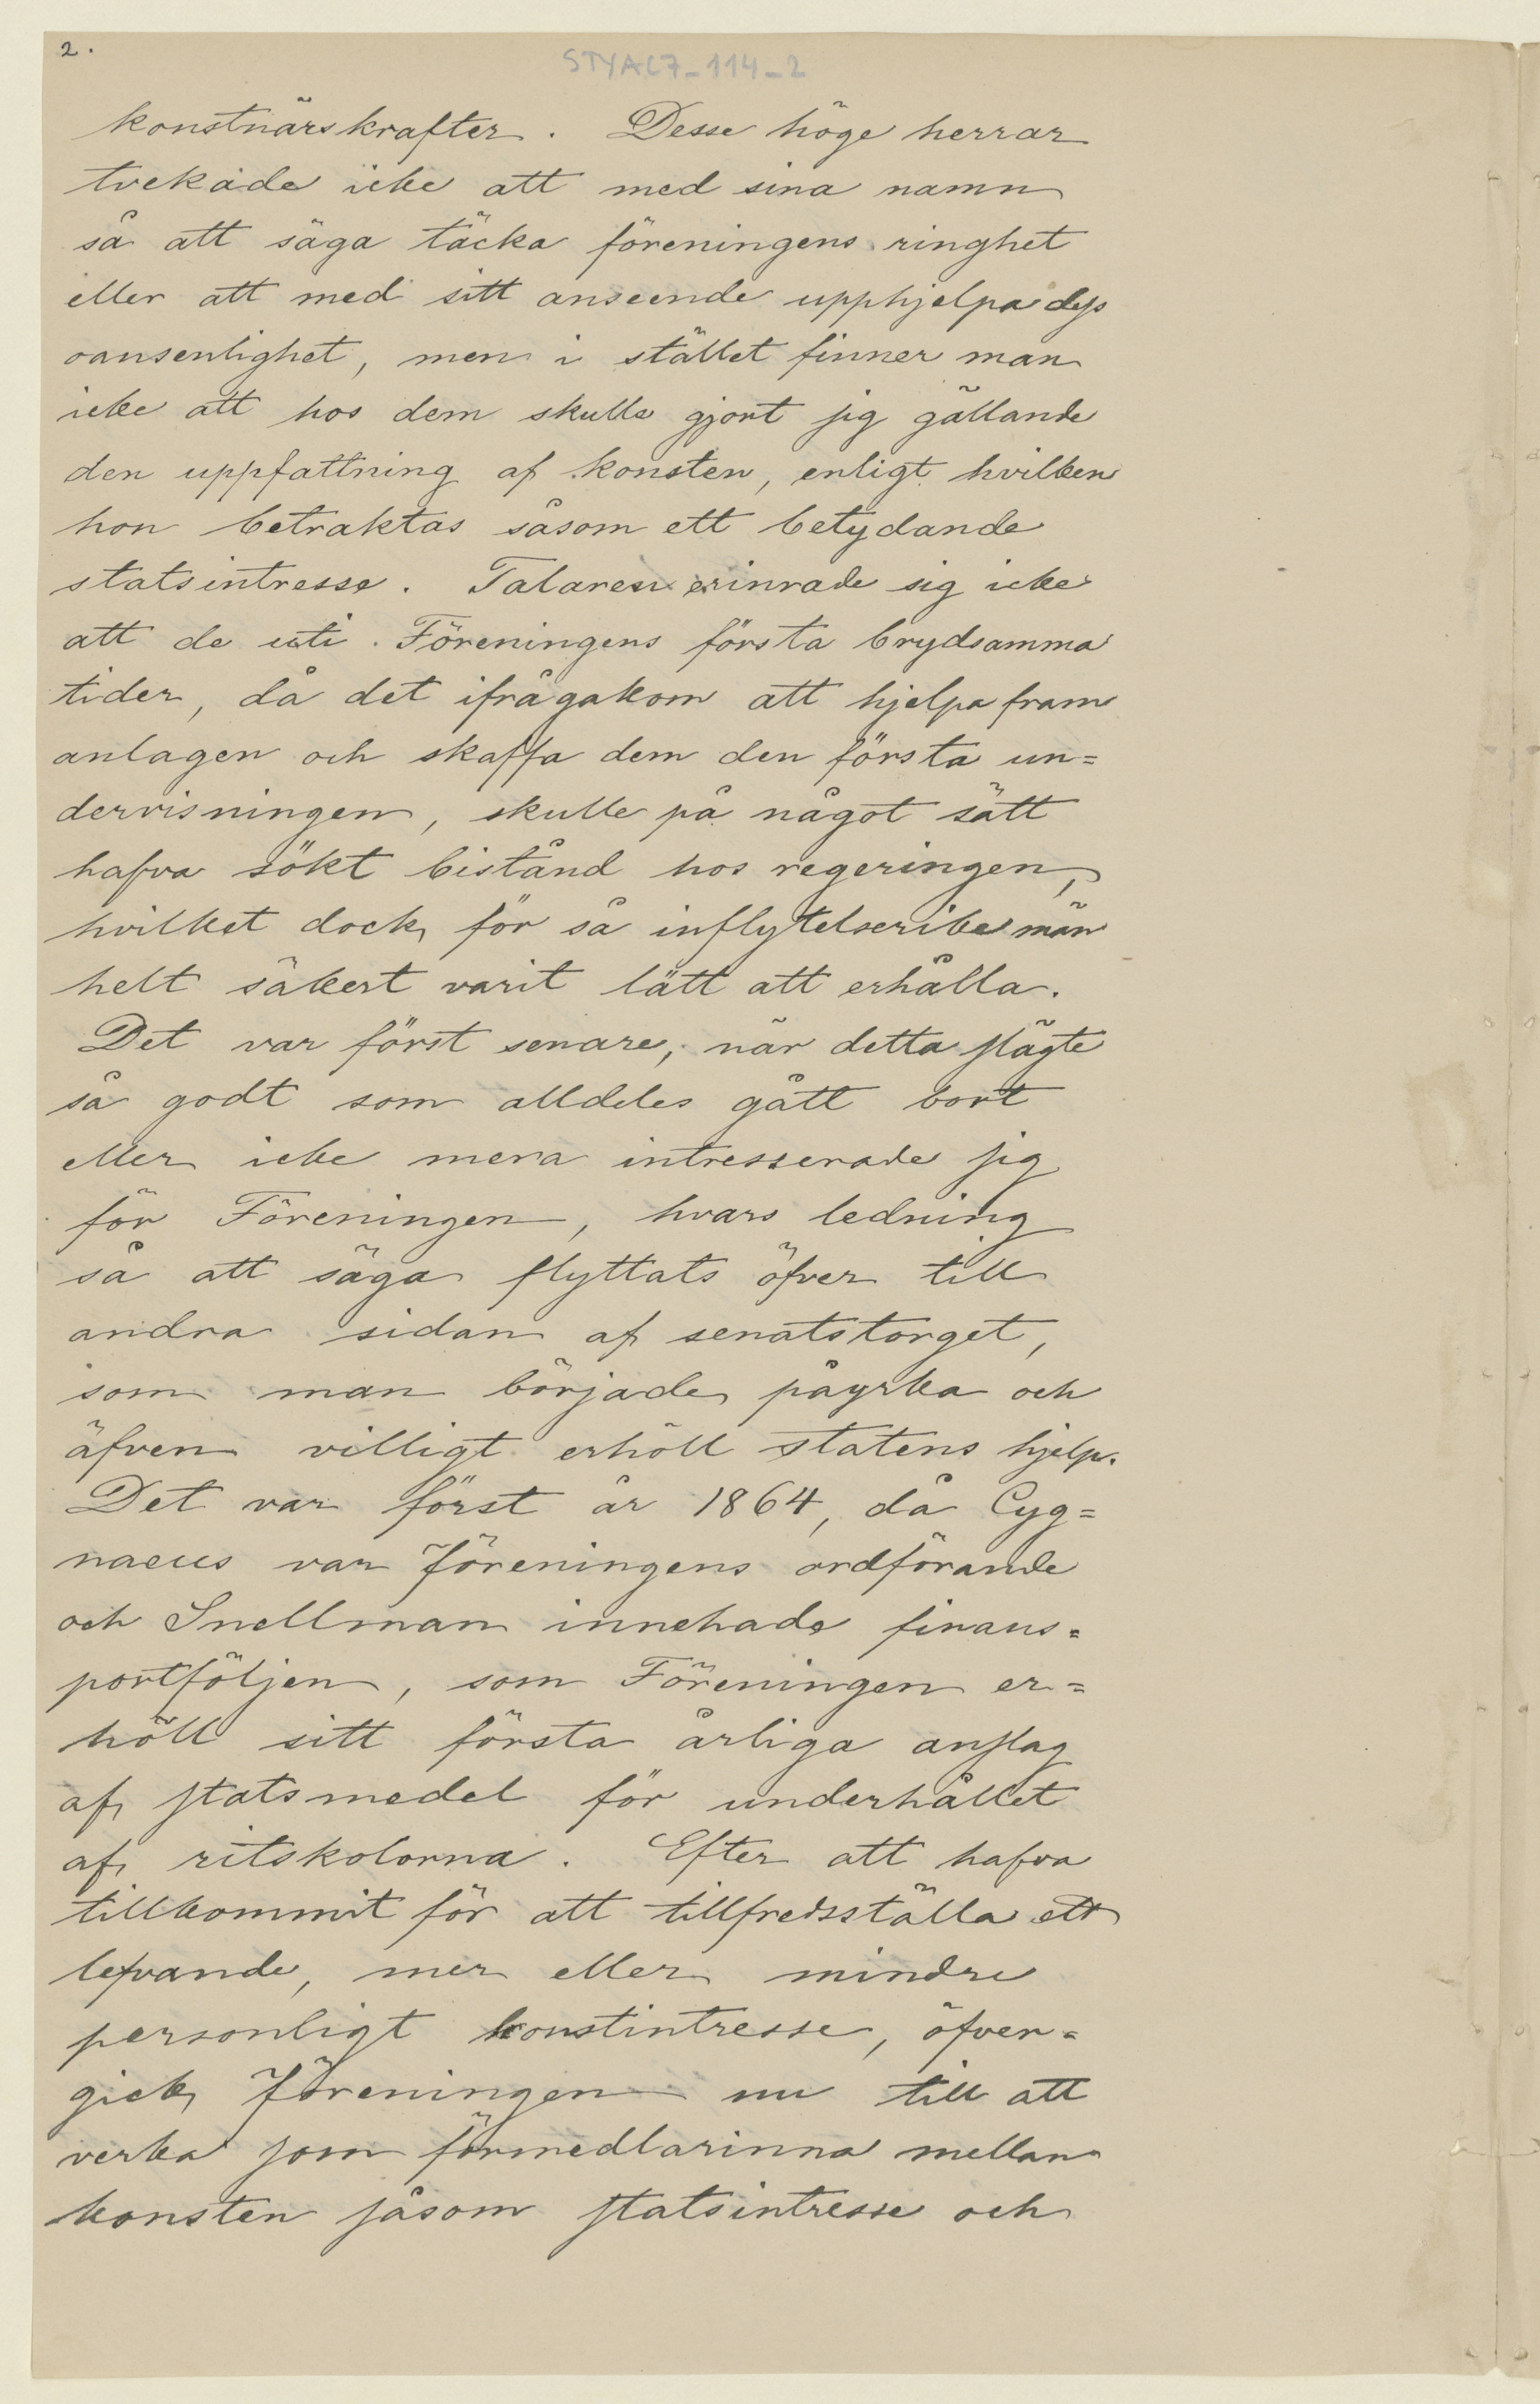 2.
STYAL7-114-2
konstnärskrafter. Desse höge herrar
tvekade icke att med sina namn
så att säga täcka föreningens ringhet
eller att med sitt anseende upphjelpa dess
oansenlighet, men i stället finner man
icke att hos dem skulle gjort sig gällande
den uppfattning af konsten, enligt hvilken
hon betraktas såsom ett betydande
statsintresse. Talaren erinrade sig icke
att de uti Föreningens första brydsamma
tider, då det ifrågakom att hjelpa fram
anlagen och skaffa dem den första un=
dervisningen, skulle på något sätt
hafva sökt bistånd hos regeringen,
hvilket dock för så inflytelserike män
helt säkert varit lätt att erhålla.
Det var först senare, när detta slägte
så godt som alldeles gått bort
eller icke mera intresserade sig
för Föreningen, hvars ledning
så att säga flyttats öfver till
andra sidan af senatstorget,
som man började påyrka och
äfven villigt erhöll statens hjelp.
Det var först år 1864, då Cyg=
naeus var föreningens ordförande
och Snellman innehade finans=
portföljen, som Föreningen er=
höll sitt första årliga anslag
af statsmedel för underhållet
af ritskolorna. Efter att hafva
tillkommit för att tillfredsställa ett
lefvande, mer eller mindre
personligt konstintresse, öfver=
gick föreningen nu till att
verka som förmedlarinna mellan
konsten såsom statsintresse och